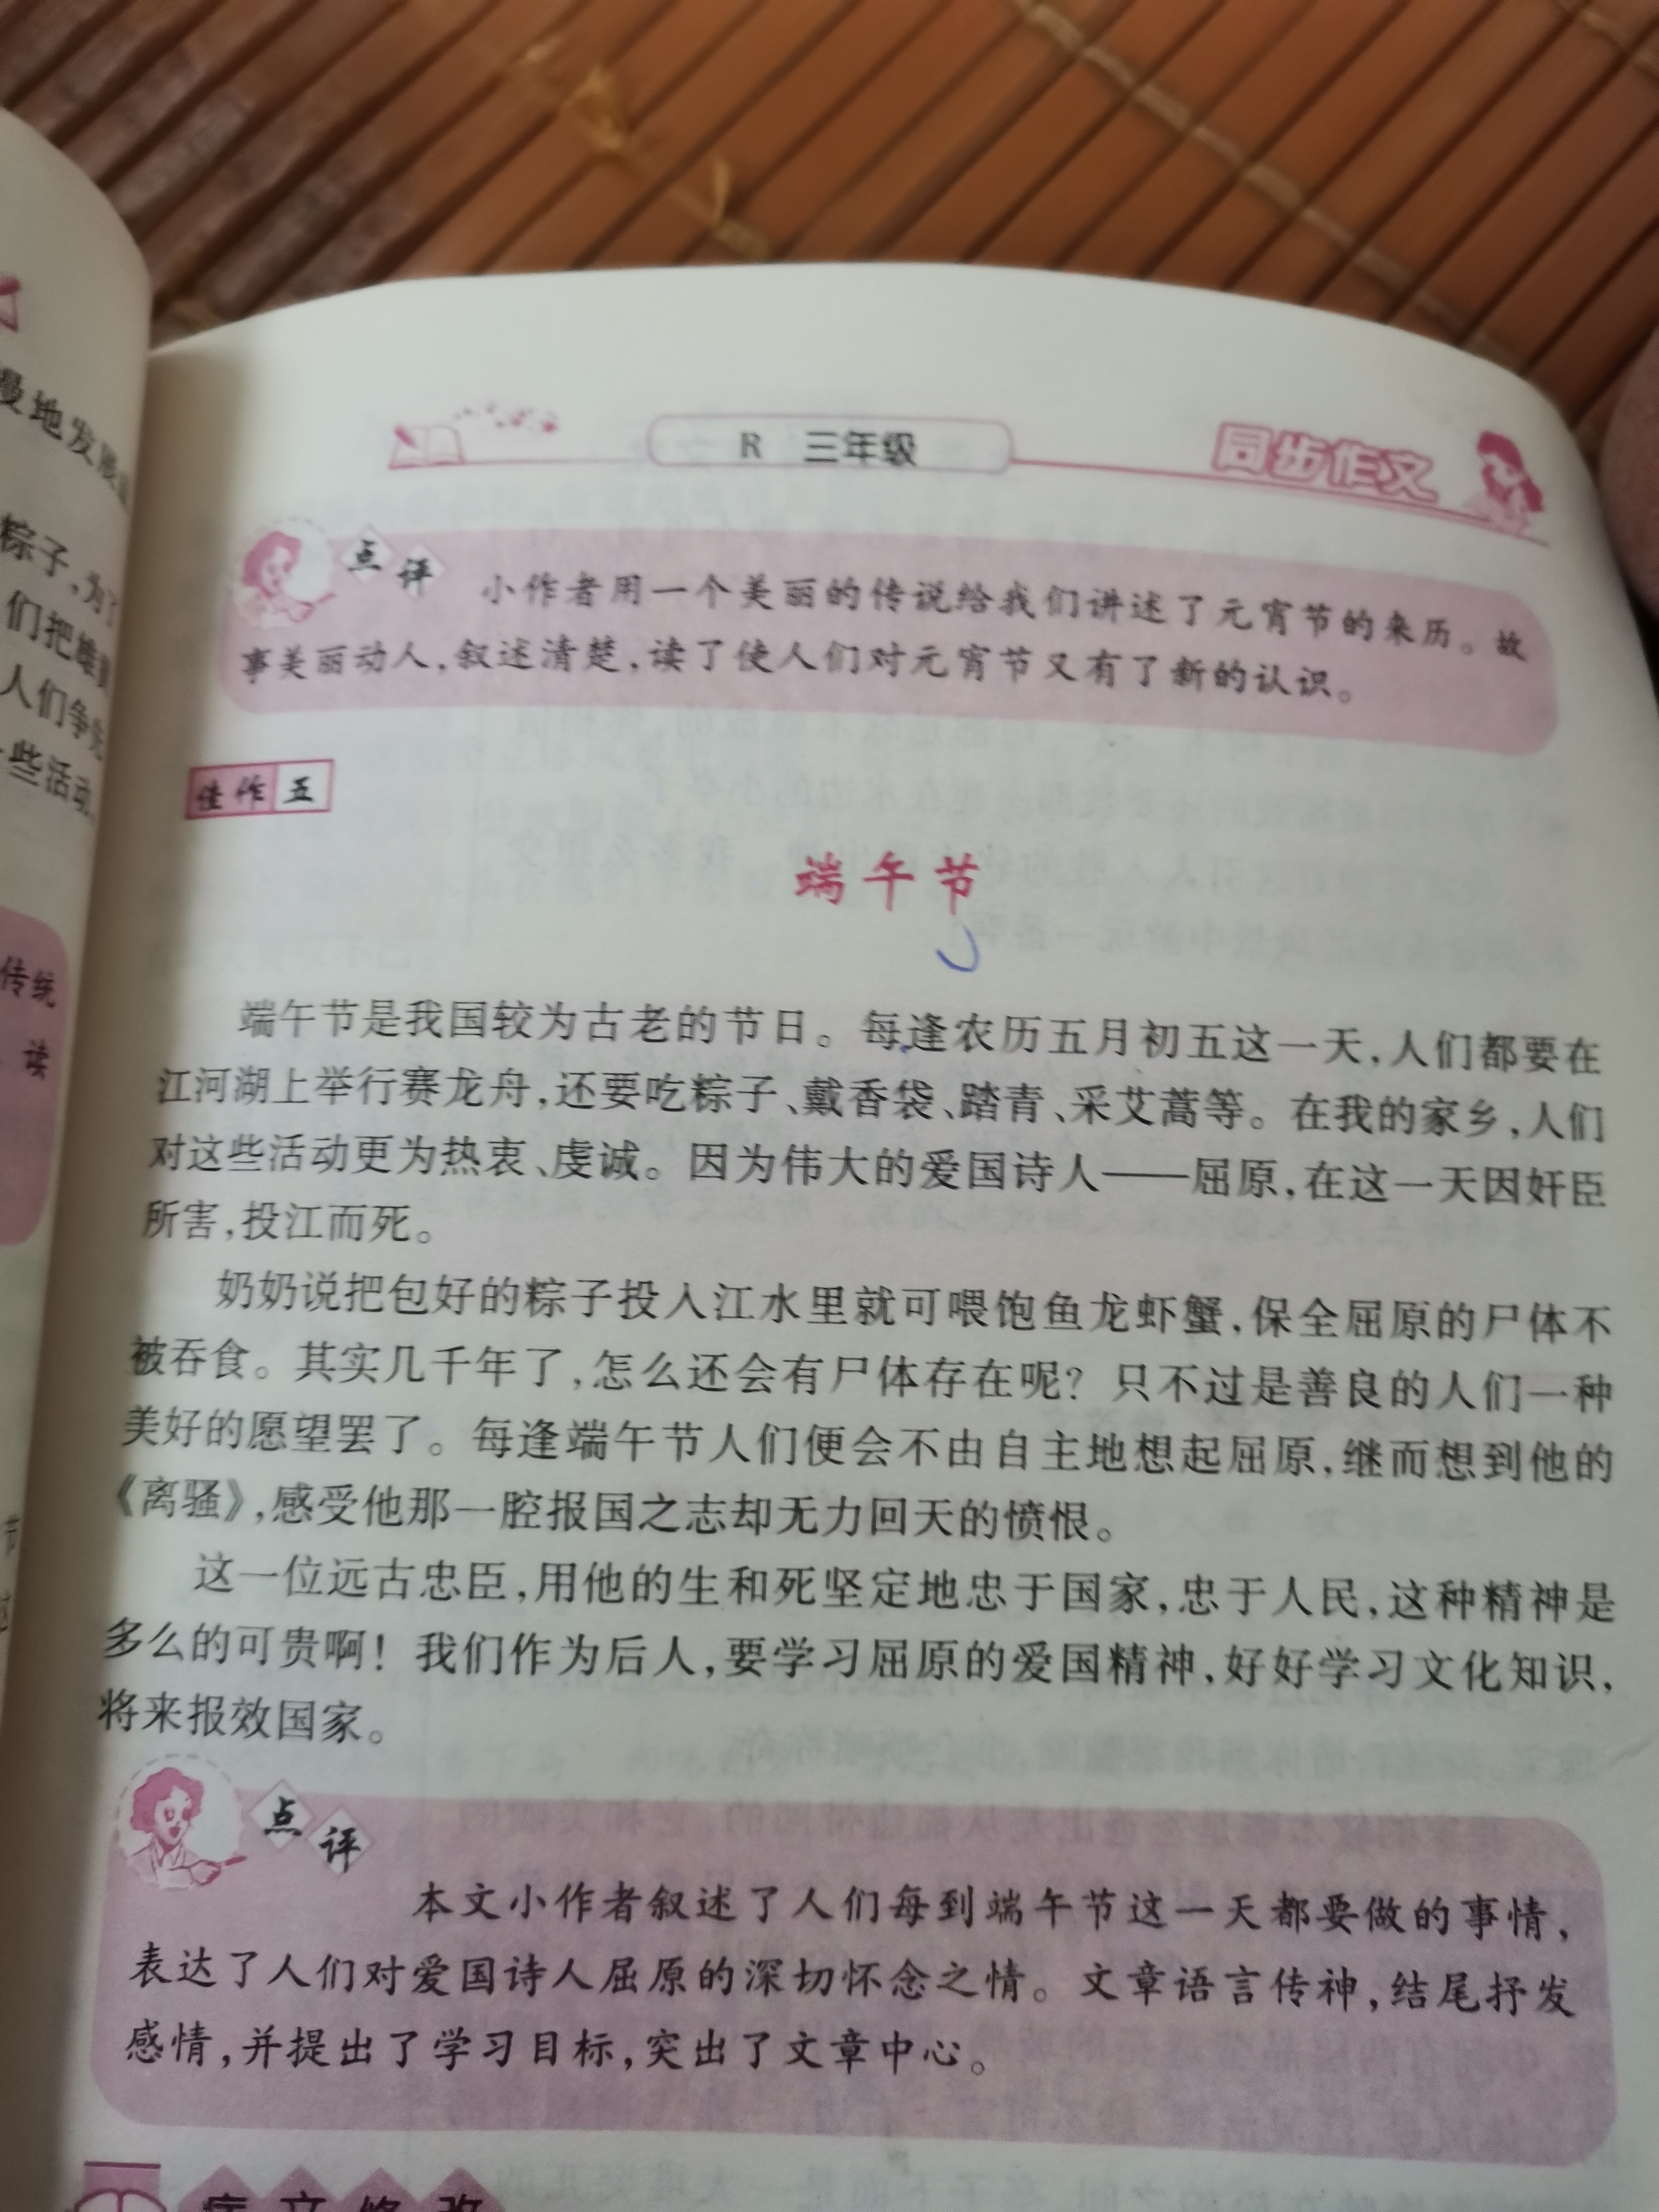 慢地发
粽子,为了
们把雄
人们争先
些活动
传统
读
节
R 三年级
同步作文
点评
小作者用一个美丽的传说给我们讲述了元宵节的来历。故
事美丽动人,叙述清楚,读了使人们对元宵节又有了新的认识。
佳作五
端午节
端午节是我国较为古老的节日。每逢农历五月初五这一天,人们都要在
江河湖上举行赛龙舟,还要吃粽子、戴香袋、踏青、采艾蒿等。在我的家乡,人们
对这些活动更为热衷、虔诚。因为伟大的爱国诗人——屈原,在这一天因奸臣
所害,投江而死。
奶奶说把包好的粽子投入江水里就可喂饱鱼龙虾蟹,保全屈原的尸体不
被吞食。其实几千年了,怎么还会有尸体存在呢?只不过是善良的人们一种
美好的愿望罢了。每逢端午节人们便会不由自主地想起屈原,继而想到他的
《离骚》,感受他那一腔报国之志却无力回天的愤恨。
这一位远古忠臣,用他的生和死坚定地忠于国家,忠于人民,这种精神是
多么的可贵啊!我们作为后人,要学习屈原的爱国精神,好好学习文化知识,
将来报效国家。
点评
本文小作者叙述了人们每到端午节这一天都要做的事情,
表达了人们对爱国诗人屈原的深切怀念之情。文章语言传神,结尾抒发
感情,并提出了学习目标,突出了文章中心。
病文修改